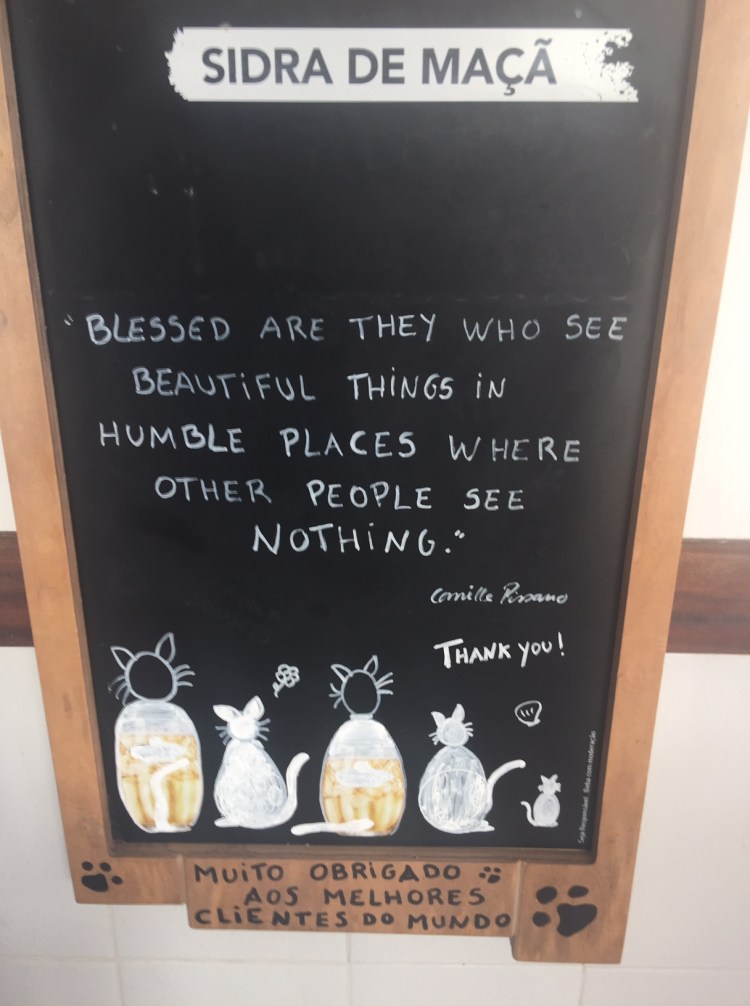 SIDRA DE MAÇÃ
"BLESSED ARE THEY WHO SEE
BEAUTIFUL THINGS IN
HUMBLE PLACES WHERE
OTHER PEOPLE SEE
NOTHING."
Camille Pissano
THANK YOU!
Seja Responsável. Beba com moderação
MUITO OBRIGADO
AOS MELHORES
CLIENTES DO MUNDO